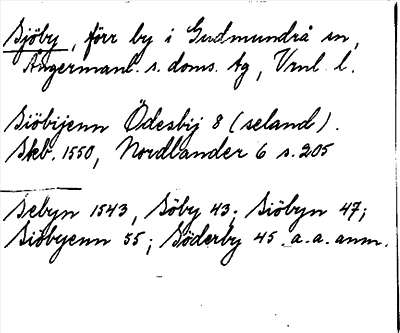 Sjöby, förr by i Gudmundrå sn,
Ångermanl. s. doms. tg, Vrnl. l.
Siöbijenn Ödesbij 8 (seland).
Skb. 1550, Nordlander 6 s. 205
Sebyn 1543, Söby 43; Siöbyn 47;
Siöbyenn 55; Söderby 45. a. a. anm.